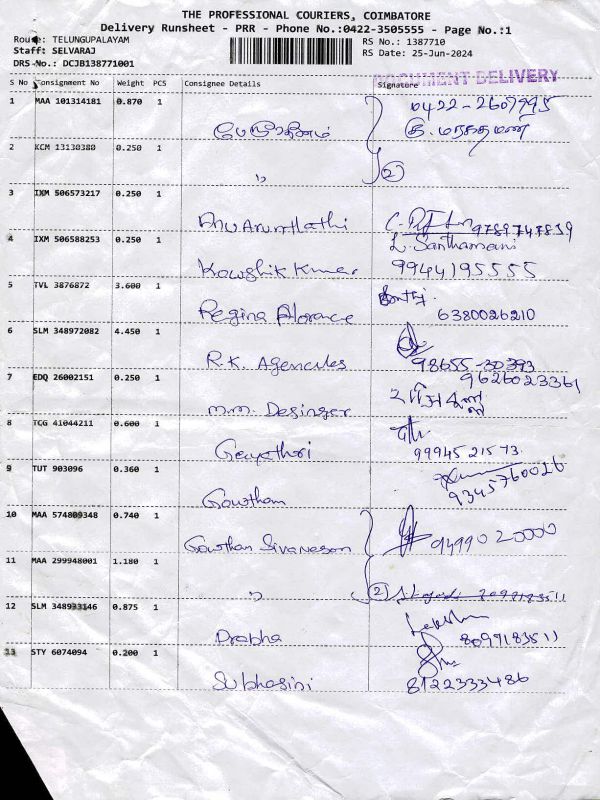 THE PROFESSIONAL COURIERS, COIMBATORE
Delivery Runsheet - PRR - Phone No.:0422-3505555 - Page No.:1
Route: TELUNGUPALAYAM
RS No.: 1387710
Staff: SELVARAJ
RS Date: 25-Jun-2024
DRS No.: DCJB138771001
DOCUMENT DELIVERY
S No Consignment No Weight PCS Consignee Details Signature
1 MAA 101314181 0.870 1 0422-2607995
2 KCM 13130380 0.250 1 " 2
3 IXM 506573217 0.250 1 Anu Arunthathi 9789747859
4 IXM 506588253 0.250 1 Kowshik Kumar L. Santhamani 9944195555
5 TVL 3876872 3.600 1 Regina Florance 6380026210
6 SLM 348972082 4.450 1 R.K. Agencules 98655-30393
7 EDQ 26002151 0.250 1 m.m. Desinger 9626023361
8 TCG 41044211 0.600 1 Gayathri 9994521573
9 TUT 903096 0.360 1 Gowtham 9345760026
10 MAA 574809348 0.740 1 Gowthan Sivaneson 9499020000
11 MAA 299948001 1.180 1 " 2 8099183511
12 SLM 348933146 0.875 1 Prabha 8099183511
13 STY 6074094 0.200 1 Subhasini 8122333486